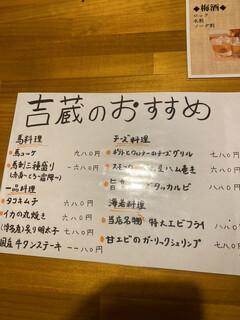 ◆梅酒◆
ロック
水割
ソーダ割
吉蔵のおすすめ
馬料理
馬ユッケ 九八〇円
馬刺三種盛り 一六八〇円
(赤身・とろ・霜降)
一品料理
タコキムチ 六八〇円
イカの丸焼き 六八〇円
(博多産)炙り明太子 七八〇円
国産牛タンステーキ 一一八〇円
チーズ料理
ポテトとウインナーのチーズグリル 七八〇円
ハム巻き 六八〇円
タッカルビ 八八〇円
海老料理
当店名物 特大エビフライ 八八〇円
甘エビのガーリックシュリンプ 七八〇円